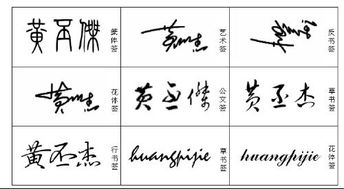 黄丕傑
篆体签
黄丕杰
艺术签
反书签
黄丕杰
花体签
黄丕傑
公文签
黄丕杰
草书签
黄丕杰
行书签
huangpijie
草书签
huangpijie
花体签